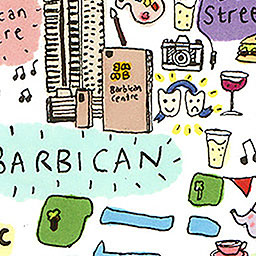 can
re
Street
Barbican
Centre
BARBICAN
C